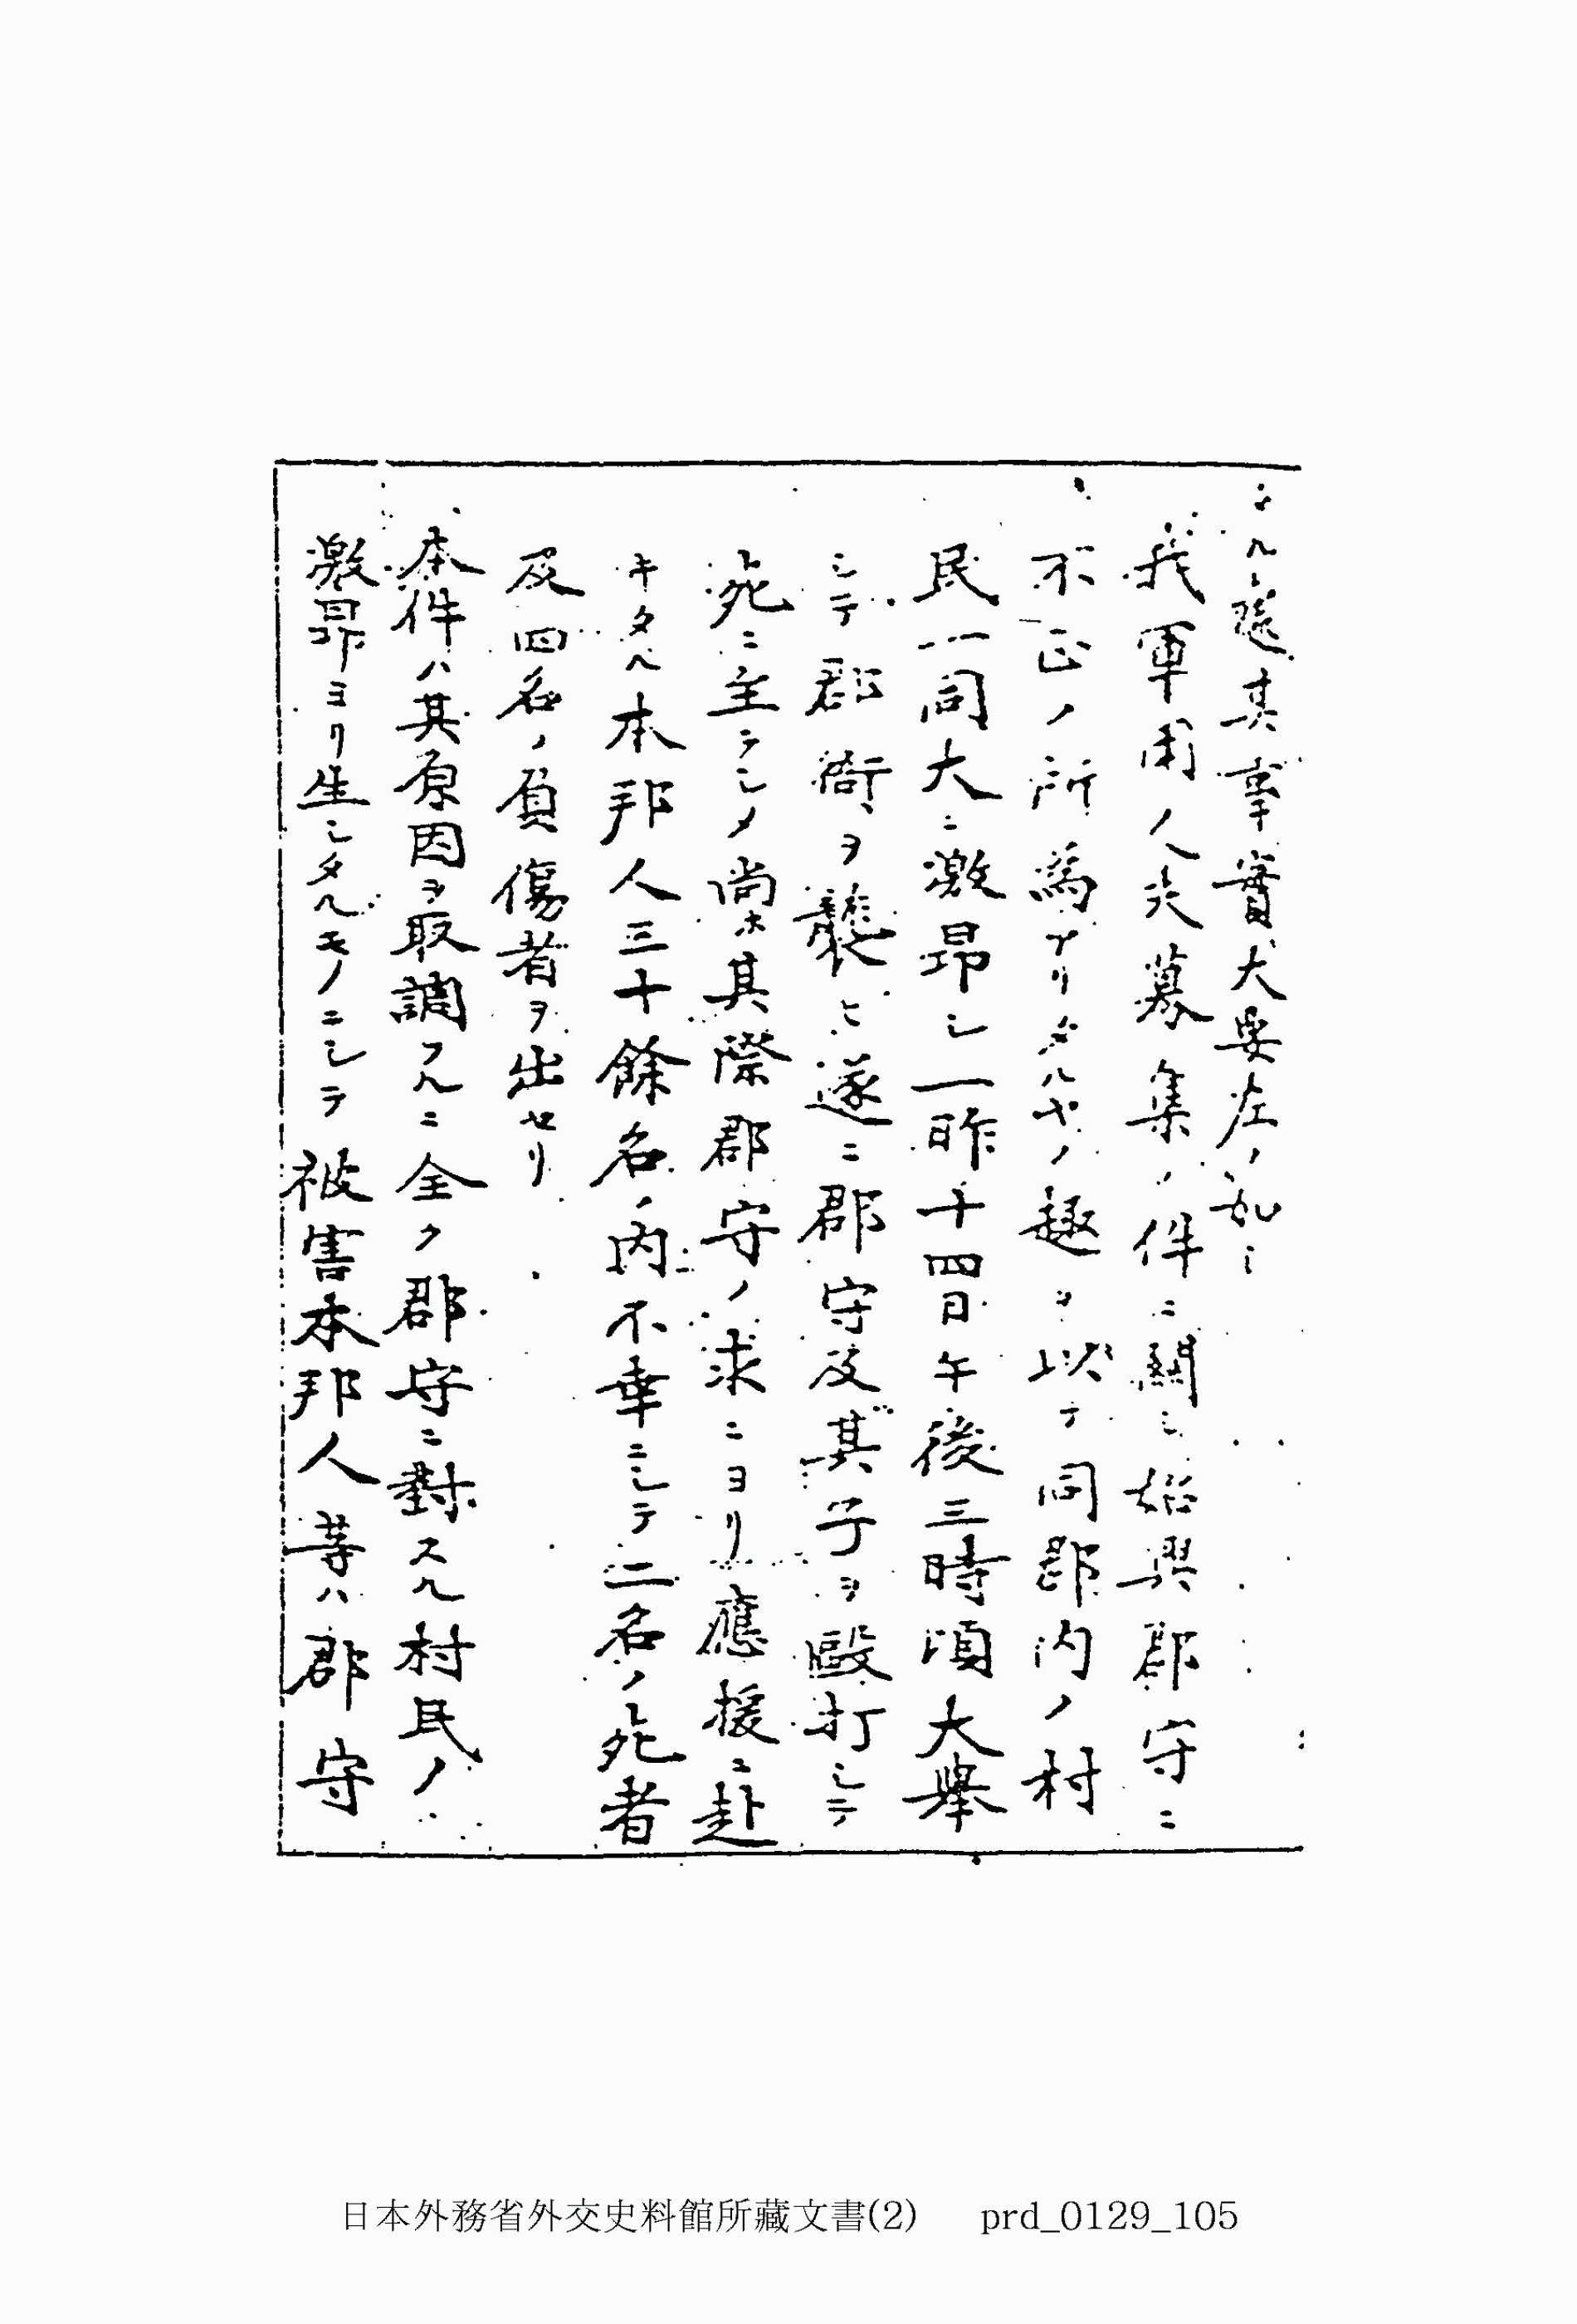 ル処其事實大要左ノ如シ
我軍用ノ人夫募集ノ件ニ關シ始興郡守ニ
不正ノ所爲アリタルヤノ趣ヲ以テ同郡内ノ村
民一同大ニ激昂シ一昨十四日午後三時頃大擧
シテ郡衙ヲ襲ヒ遂ニ郡守及其子ヲ毆打シテ
死ニ至ラシメ尚ホ其際郡守ノ求ニヨリ應援ニ赴
キタル本邦人三十餘名ノ内不幸ニシテ二名ノ死者
及四名ノ負傷者ヲ出セリ
本件ハ其原因ヲ取調フルニ全ク郡守ニ對スル村民ノ
激昂ヨリ生シタルモノニシテ被害本邦人等ハ郡守
日本外務省外交史料館所藏文書(2) prd_0129_105